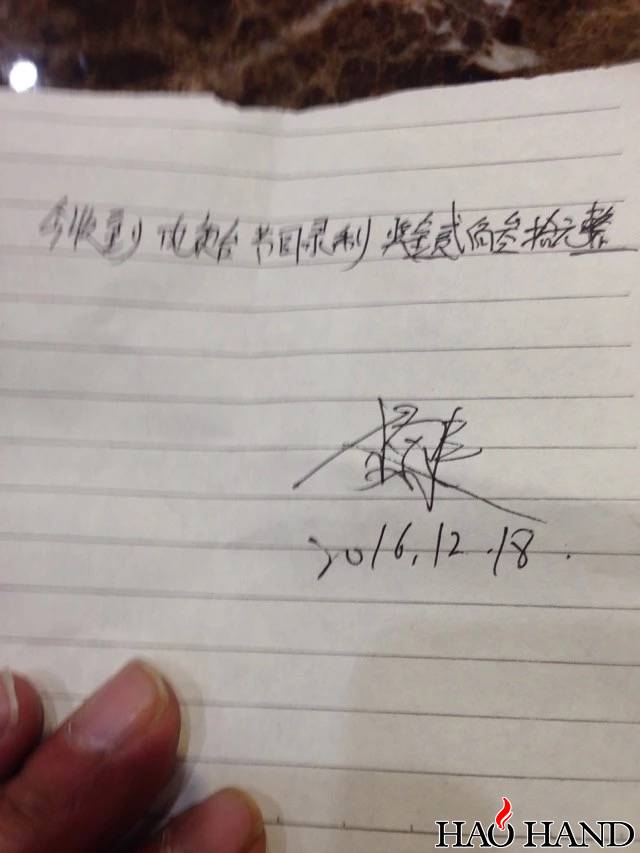 今收到 电视台 节目录制 奖金贰佰叁拾元整
2016.12.18.
HAO HAND